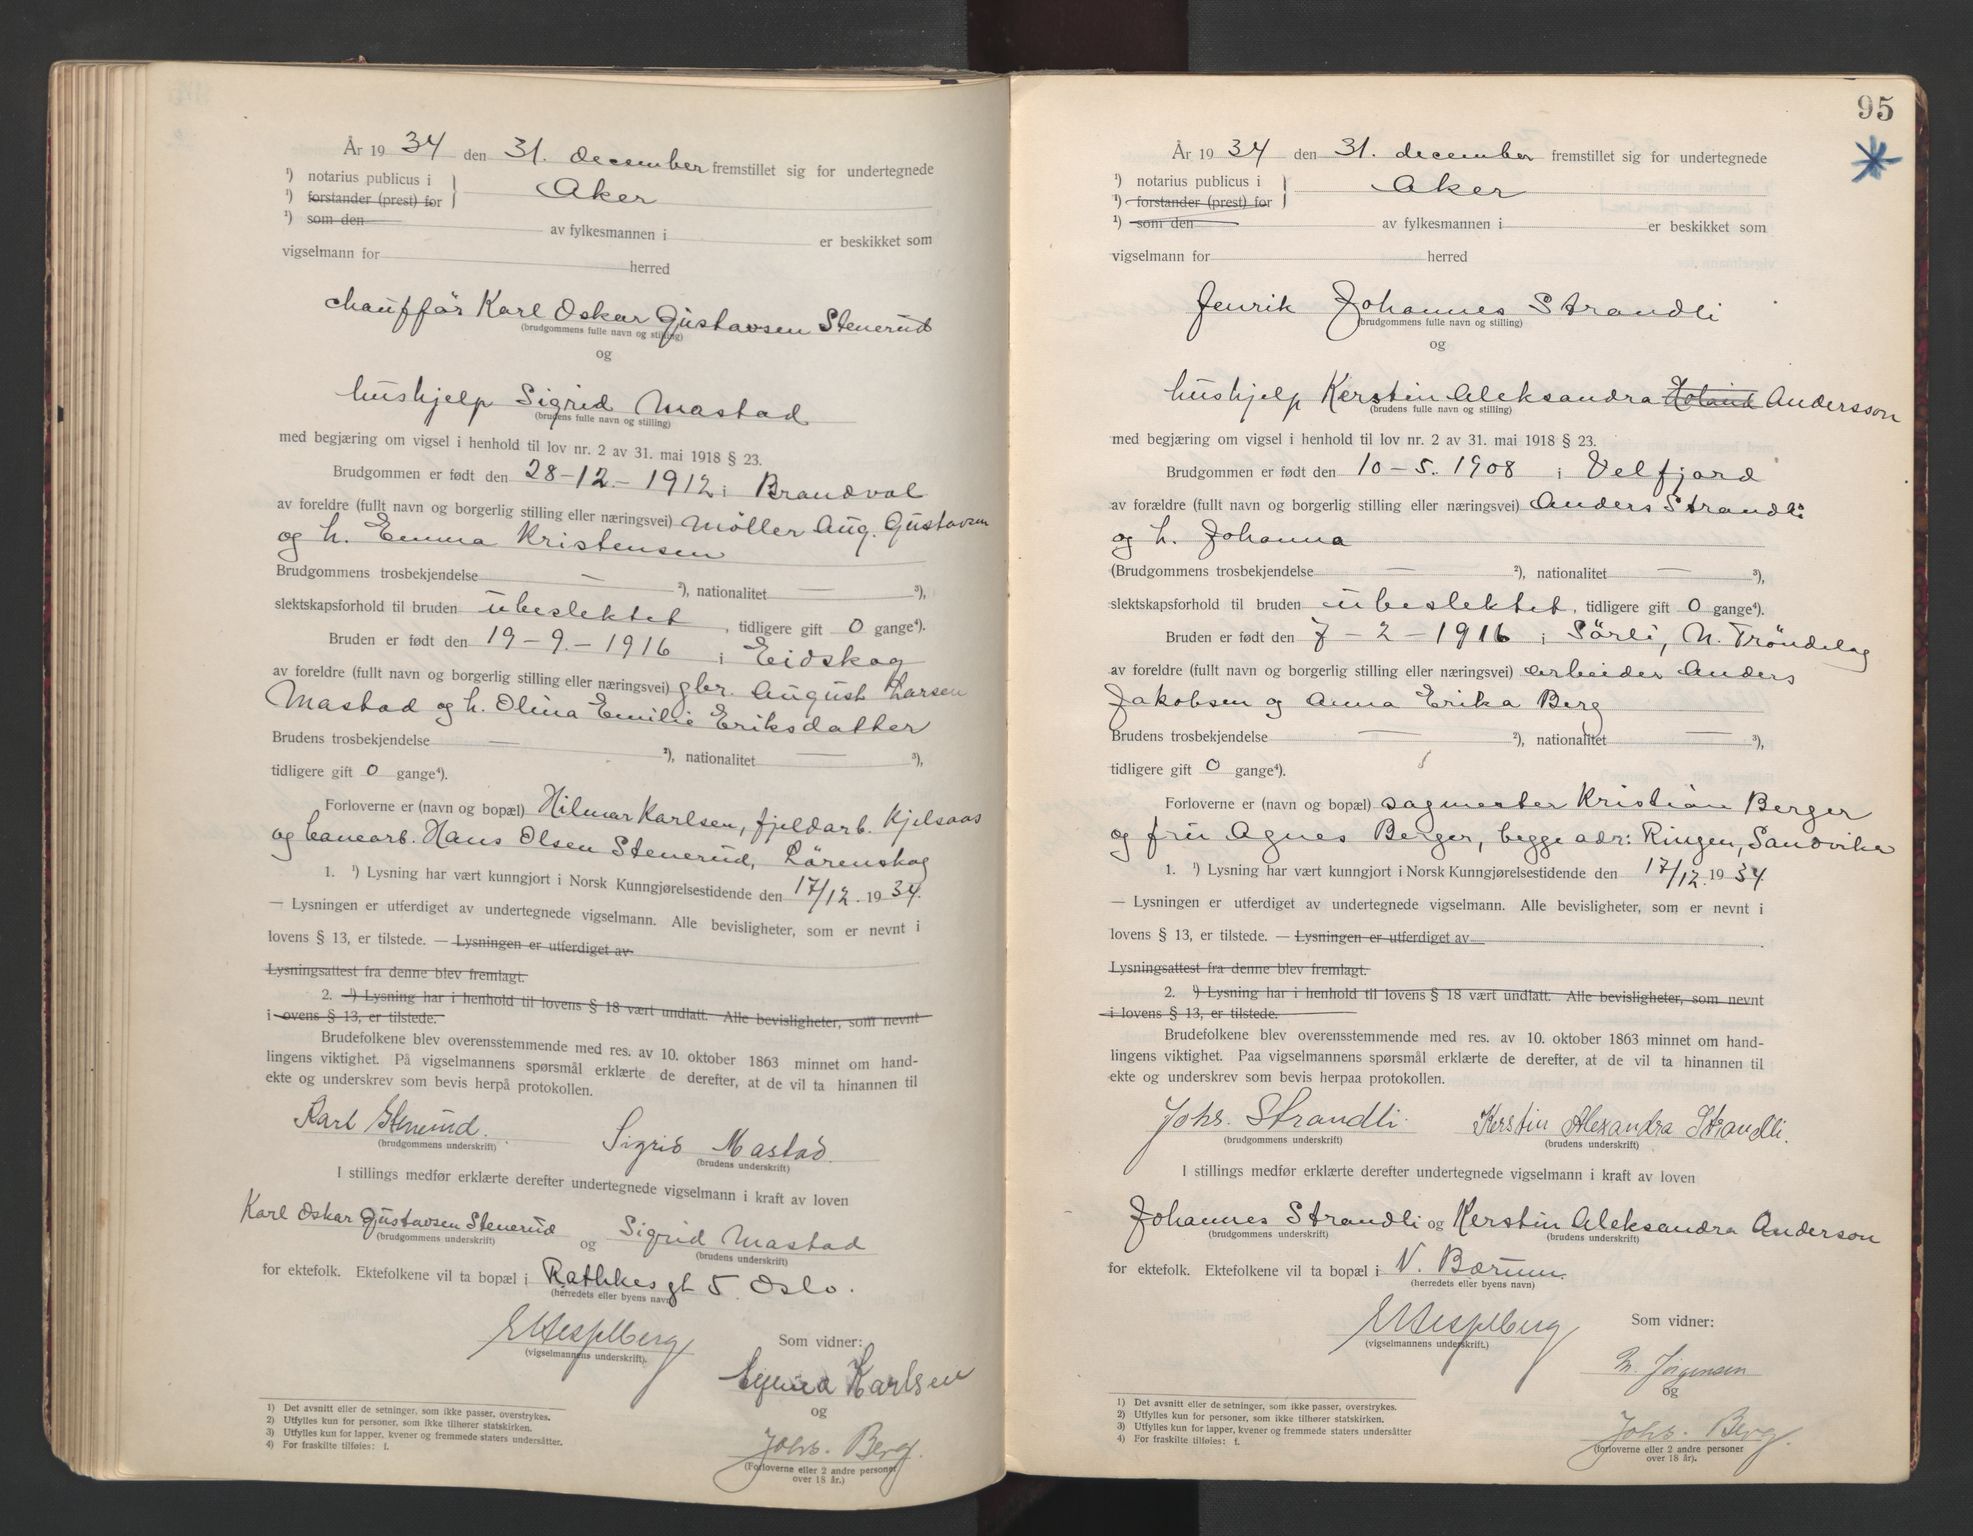 År 1934 den 31. december fremstillet sig for undertegnede
¹) notarius publicus i Aker
¹) forstander (prest) for
¹) som den av fylkesmannen i er beskikket som
vigselmann for herred
chauffør Karl Oskar Gustavsen Stenerud
(brudgommens fulle navn og stilling)
og
hushjelp Sigrid Mastad
(brudens fulle navn og stilling)
med begjæring om vigsel i henhold til lov nr. 2 av 31. mai 1918 § 23.
Brudgommen er født den 28-12.-1912 i Brandval
av foreldre (fullt navn og borgerlig stilling eller næringsvei) Møller Aug. Gustavsen
og h. Emma Kristensen
Brudgommens trosbekjendelse — ²), nationalitet — ³),
slektskapsforhold til bruden ubeslektet, tidligere gift 0 gange⁴).
Bruden er født den 19-9.-1916 i Eidskog
av foreldre (fullt navn og borgerlig stilling eller næringsvei) gbr. August Larsen
Mastad og h. Olina Emilie Eriksdatter
Brudens trosbekjendelse — ²), nationalitet — ³),
tidligere gift 0 gange⁴).
Forloverne er (navn og bopæl) Hilmar Karlsen, fjeldarb. Kjelsaas
og banearb. Hans Olsen Stenerud, Lørenskog
1. ¹) Lysning har vært kunngjort i Norsk Kunngjørelsestidende den 17/12. 1934.
— Lysningen er utferdiget av undertegnede vigselmann. Alle bevisligheter, som er nevnt i
lovens § 13, er tilstede. — Lysningen er utferdiget av
Lysningsattest fra denne blev fremlagt.
2. ¹) Lysning har i henhold til lovens § 18 vært undlatt. Alle bevisligheter, som nevnt
i ovens § 13, er tilstede.
Brudefolkene blev overensstemmende med res. av 10. oktober 1863 minnet om hand-
lingens viktighet. På vigselmannens spørsmål erklærte de derefter, at de vil ta hinannen til
ekte og underskrev som bevis herpå protokollen.
Karl Stenerud. Sigrid Mastad.
(brudgommens underskrift) (brudens underskrift)
I stillings medfør erklærte derefter undertegnede vigselmann i kraft av loven
Karl Oskar Gustavsen Stenerud og Sigrid Mastad
(brudgommens underskrift) (brudens underskrift)
for ektefolk. Ektefolkene vil ta bopæl i Rathkesgt 5. Oslo.
(herredets eller byens navn)
(vigselmannens underskrift).
Som vidner:
Karlsen
og
Johs. Berg.
(Forloverne eller 2 andre personer
over 18 år.)
1) Det avsnitt eller de setninger, som ikke passer, overstrykes.
2) Utfylles kun for personer, som ikke tilhører statskirken.
3) Utfylles kun for lapper, kvener og fremmede staters undersåtter.
4) For fraskilte tilføies: f.
95
År 1934 den 31. december fremstillet sig for undertegnede
¹) notarius publicus i Aker
¹) forstander (prest) for
¹) som den av fylkesmannen i er beskikket som
vigselmann for herred
Jenrik Johannes Strandli
(brudgommens fulle navn og stilling)
og
hushjelp Kerstin Aleksandra Andersson
(brudens fulle navn og stilling)
med begjæring om vigsel i henhold til lov nr. 2 av 31. mai 1918 § 23.
Brudgommen er født den 10-5.1908 i Velfjord
av forældre (fullt navn og borgerlig stilling eller næringsvei) Anders Strandli
og h. Johanna
(Brudgommens trosbekjendelse — ²), nationalitet — ³),
slektskapsforhold til bruden ubeslektet, tidligere gift 0 gange⁴).
Bruden er født den 7-2-1916 i Sørli, N. Trøndelag
av foreldre (fullt navn og borgerlig stilling eller næringsvei) arbeider Anders
Jakobsen og Anna Erika Berg
Brudens trosbekjendelse — ²), nationalitet — ³),
tidligere gift 0 gange⁴).
Forloverne er (navn og bopæl) sagmester Kristian Berger
og fru Agnes Berger, begge adr: Ringen, Sandvika
1. ¹) Lysning har vært kunngjort i Norsk Kunngjørelsestidende den 17/12. 1934.
— Lysningen er utferdiget av undertegnede vigselmann. Alle bevisligheter, som er nevnt i
lovens § 13, er tilstede. — Lysningen er utferdiget av
Lysningsattest fra denne blev fremlagt.
2. ¹) Lysning har i henhold til lovens § 18 vært undlatt. Alle bevisligheter, som nevnt
i lovens § 13, er tilstede.
Brudefolkene blev overensstemmende med res. av 10. oktober 1863 minnet om hand-
lingens viktighet. Paa vigselmannens spørsmål erklærte de derefter, at de vil ta hinannen til
ekte og underskrev som bevis herpaa protokollen.
Johs. Strandli. Kerstin Alexandra Strandli.
(brudgommens underskrift) (brudens underskrift)
I stillings medfør erklærte derefter undertegnede vigselmann i kraft av loven
Johannes Strandli og Kerstin Aleksandra Anderson
(brudgommens underskrift) (brudens underskrift)
for ektefolk. Ektefolkene vil ta bopæl i V. Bærum.
(herredets eller byens navn)
(vigselmannens underskrift.)
Som vidner:
M. Jørgensen
og
Johs. Berg.
(forloverne eller 2 andre personer
over 18 år).
1) Det avsnitt eller de setninger, som ikke passer, overstrykes.
2) Utfylles kun for personer, som ikke tilhører statskirken.
3) Utfylles kun for lapper, kvener og fremmede staters undersåtter
4) For fraskilte tilføies: f.